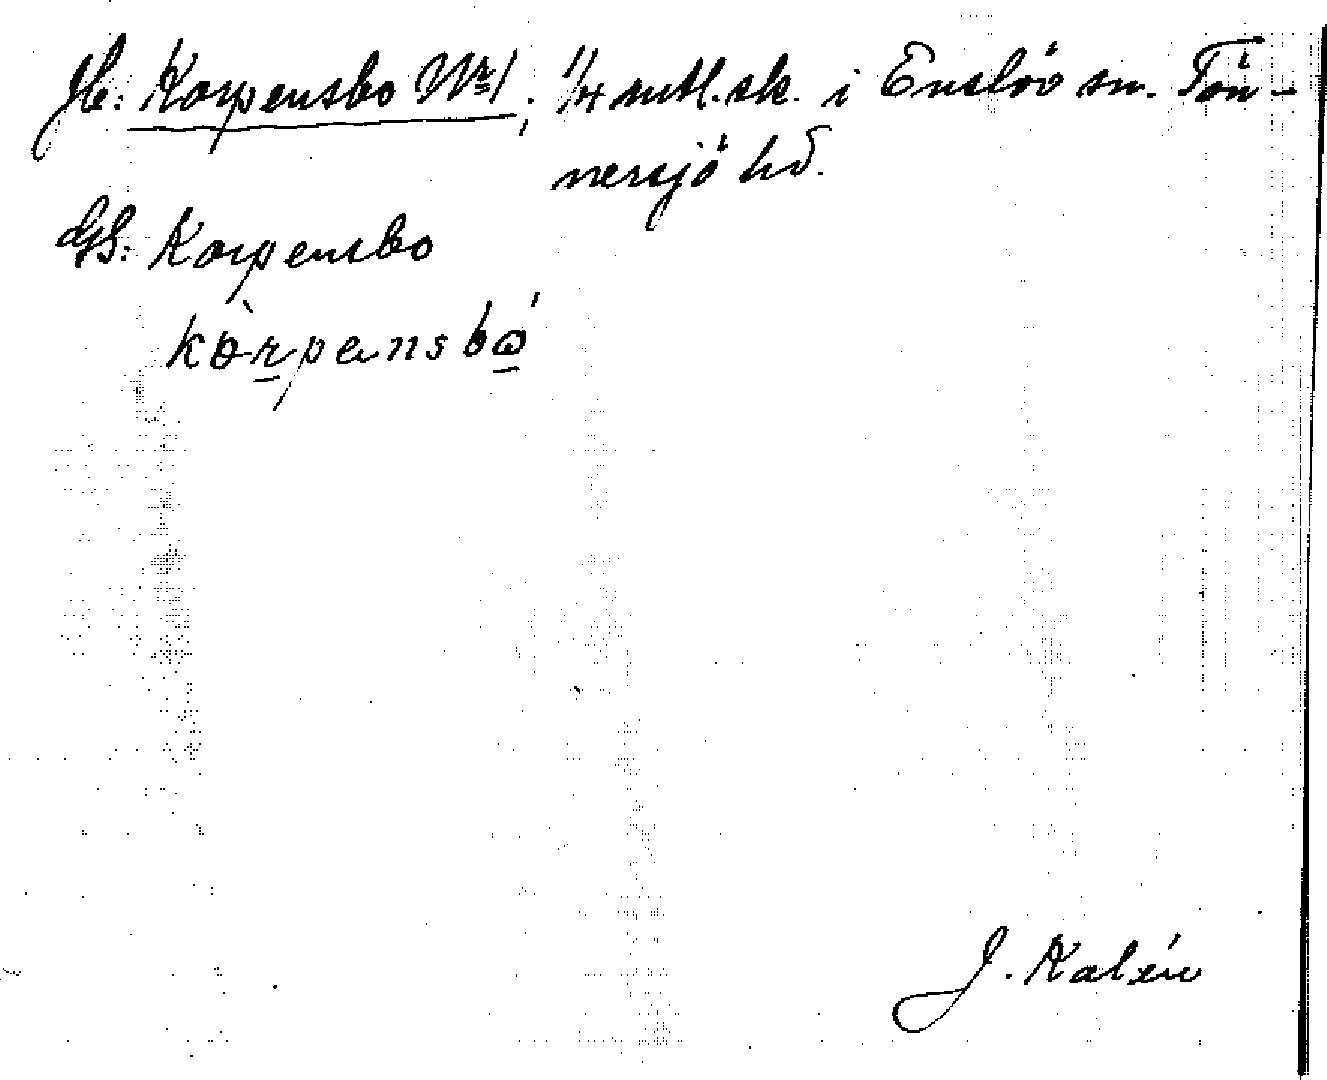 Jb: Korpensbo Nr 1; 1/4 mtl. sk. i Enslöv sn. Tön-
nersjö hd.
GS: Korpensbo
kòrpansbó
J. Kalén